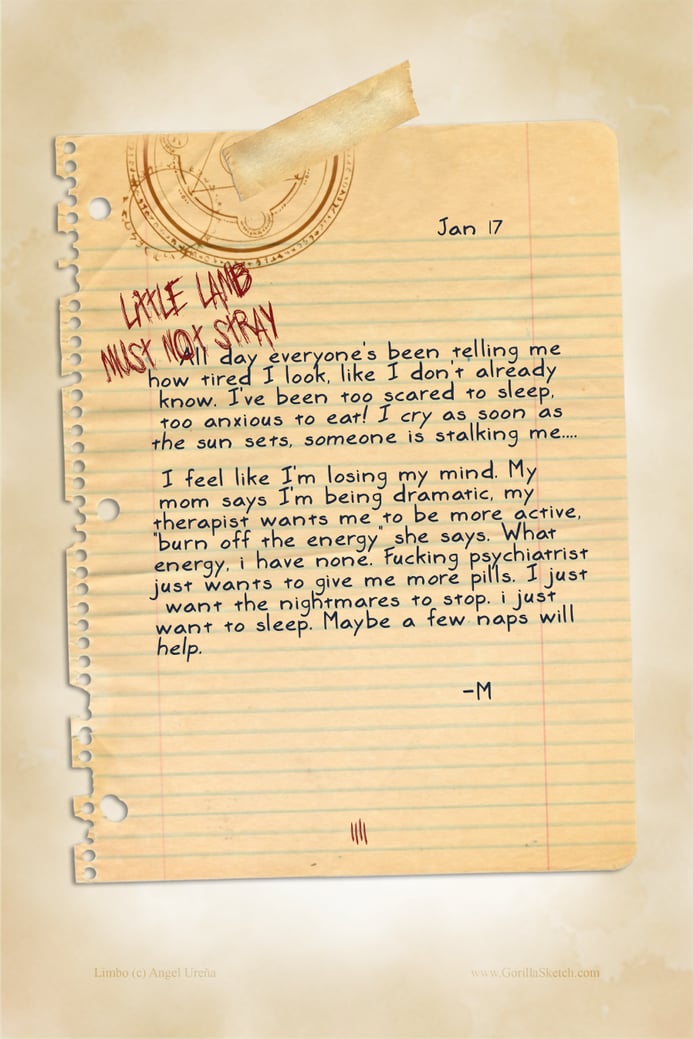 Jan 17
LITTLE LAMB
MUST NOT STRAY
All day everyone's been telling me
how tired I look, like I don't already
know. I've been too scared to sleep,
too anxious to eat! I cry as soon as
the sun sets, someone is stalking me....
I feel like I'm losing my mind. My
mom says I'm being dramatic, my
therapist wants me to be more active,
"burn off the energy" she says. What
energy, i have none. Fucking psychiatrist
just wants to give me more pills. I just
want the nightmares to stop. i just
want to sleep. Maybe a few naps will
help.
-M
Limbo (c) Angel Ureña
www.GorillaSketch.com